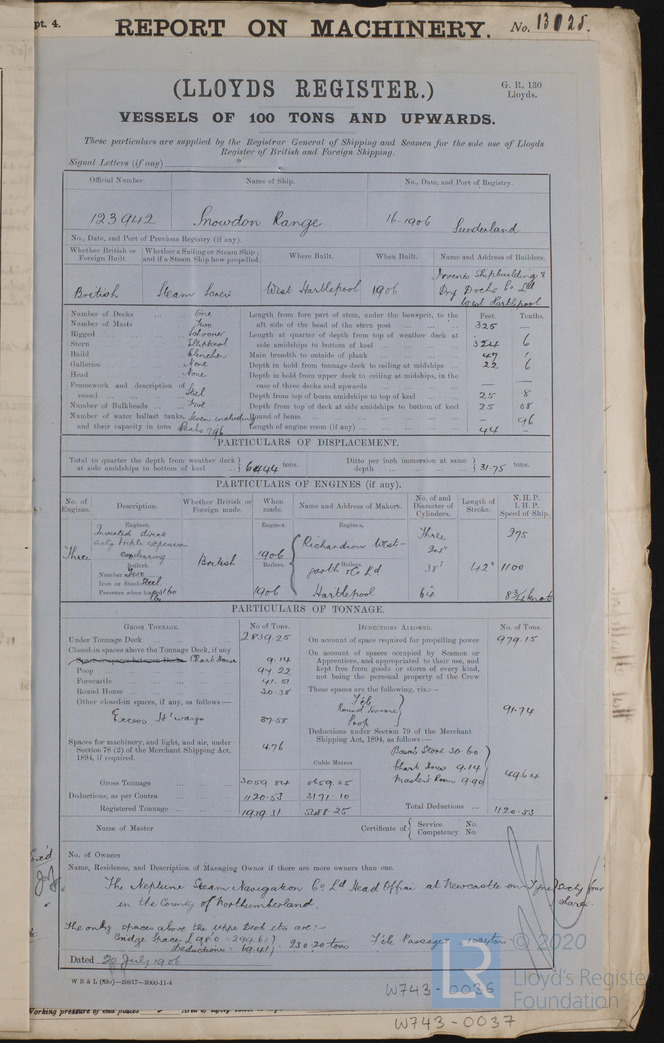 pt. 4.
REPORT ON MACHINERY. No. 13025.
(LLOYDS REGISTER.)
G. R. 130
Lloyds.
VESSELS OF 100 TONS AND UPWARDS.
These particulars are supplied by the Registrar General of Shipping and Seamen for the sole use of Lloyds
Register of British and Foreign Shipping.
Signal Letters (if any)
Official Number. Name of Ship. No., Date, and Port of Registry.
123942 Snowdon Range 16-1906 Sunderland
No., Date, and Port of Previous Registry (if any).
Whether British or Foreign Built. Whether a Sailing or Steam Ship; and if a Steam Ship how propelled. Where Built. When Built. Name and Address of Builders.
British Steam Screw West Hartlepool 1906 Irvine's Shipbuilding & Dry Docks Co Ld West Hartlepool
Number of Decks One
Number of Masts Two
Rigged Schooner
Stern Elliptical
Build Clencher
Galleries None
Head None
Framework and description of vessel Steel
Number of Bulkheads Five
Number of water ballast tanks, and their capacity in tons Seven including Peaks 796
Feet. Tenths.
Length from fore part of stem, under the bowsprit, to the aft side of the head of the stern post 325 —
Length at quarter of depth from top of weather deck at side amidships to bottom of keel 324 6
Main breadth to outside of plank 47 1
Depth in hold from tonnage deck to ceiling at midships 22 6
Depth in hold from upper deck to ceiling at midships, in the case of three decks and upwards — —
Depth from top of beam amidships to top of keel 25 8
Depth from top of deck at side amidships to bottom of keel 25 08
Round of beam — 96
Length of engine room (if any) 44 —
PARTICULARS OF DISPLACEMENT.
Total to quarter the depth from weather deck at side amidships to bottom of keel 6444 tons.
Ditto per inch immersion at same depth 31.75 tons.
PARTICULARS OF ENGINES (if any).
No. of Engines. Description. Whether British or Foreign made. When made. Name and Address of Makers. No. of and Diameter of Cylinders. Length of Stroke. N. H. P. I. H. P. Speed of Ship.
Engines. Engines Engines,
Inverted direct acting triple expansion condensing
Three British 1906 Richardsons West- Three 275
Boilers. Boilers Boilers,
Number Two garth & Co Ld 38" 42" 1100
Iron or Steel Steel
Pressure when loaded 160 lbs 1906 Hartlepool 64 8¾ knots
PARTICULARS OF TONNAGE.
GROSS TONNAGE. No of Tons. DEDUCTIONS ALLOWED. No. of Tons.
Under Tonnage Deck 2839.25
On account of space required for propelling power 979.15
Closed-in spaces above the Tonnage Deck, if any
Chart House 9.14
Poop 94.22
Forecastle 41.51
Round House 20.38
Other closed-in spaces, if any, as follows:—
Excess H'ways 37.58
Spaces for machinery, and light, and air, under Section 78 (2) of the Merchant Shipping Act, 1894, if required. 4.76
On account of spaces occupied by Seamen or Apprentices, and appropriated to their use, and kept free from goods or stores of every kind, not being the personal property of the Crew
These spaces are the following, viz.:—
F'cle
Round House
Poop
91.74
Deductions under Section 79 of the Merchant Shipping Act, 1894, as follows:—
Boats Store 30.60
Chart House 9.14
Master's Room 9.90
49.64
Cubic Metres
Gross Tonnage 3059.84 8659.25
Deductions, as per Contra 1120.53 3171.10
Registered Tonnage 1939.31 5488.25
Total Deductions 1120.53
Name of Master
Certificate of Service No.
Competency No.
No. of Owners
Name, Residence, and Description of Managing Owner if there are more owners than one.
The Neptune Steam Navigation Co Ld Head Office at Newcastle on Tyne Sixty four
in the County of Northumberland. Shares.
The only spaces above the Upper Deck etc are:—
Bridge Space
Deductions 69.41 230.20 tons F'cle Passage
Dated 20 July 1906
W B & L (83c)—20937—2000-11-4
© 2020
Lloyd's Register
Foundation
LR
W743-0036
Working pressure of end plates
W743-0037